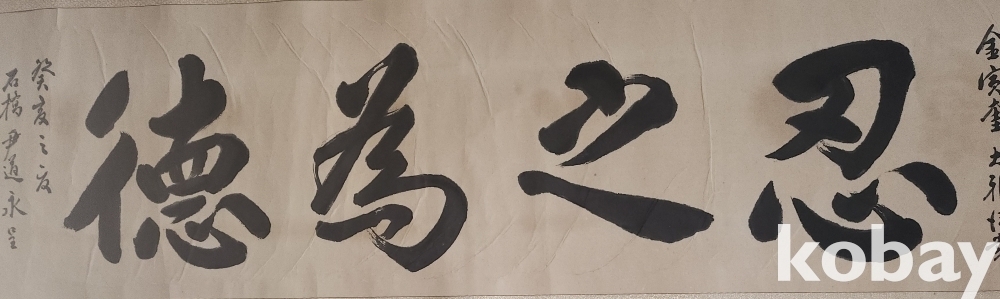 金寅奎 大雅
忍之為德
癸亥之夏
石橋 尹道永 呈
kobay